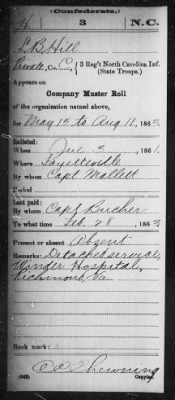 (Confederate.)
H 3 N.C.
L B Hill
Private, Co. C, 3 Reg't North Carolina Inf.
(State Troops.)
Appears on
Company Muster Roll
of the organization named above,
for May 15 to Aug 11, 1863
Enlisted:
When Jue 3, 1861
Where Fayetteville
By whom Capt Mallett
Period
Last paid:
By whom Capt Bucher
To what time Feb. 28, 1863
Present or absent Absent
Remarks: Detached service,
Winder Hospital,
Richmond, Va
Book mark:
(642) Copyist.